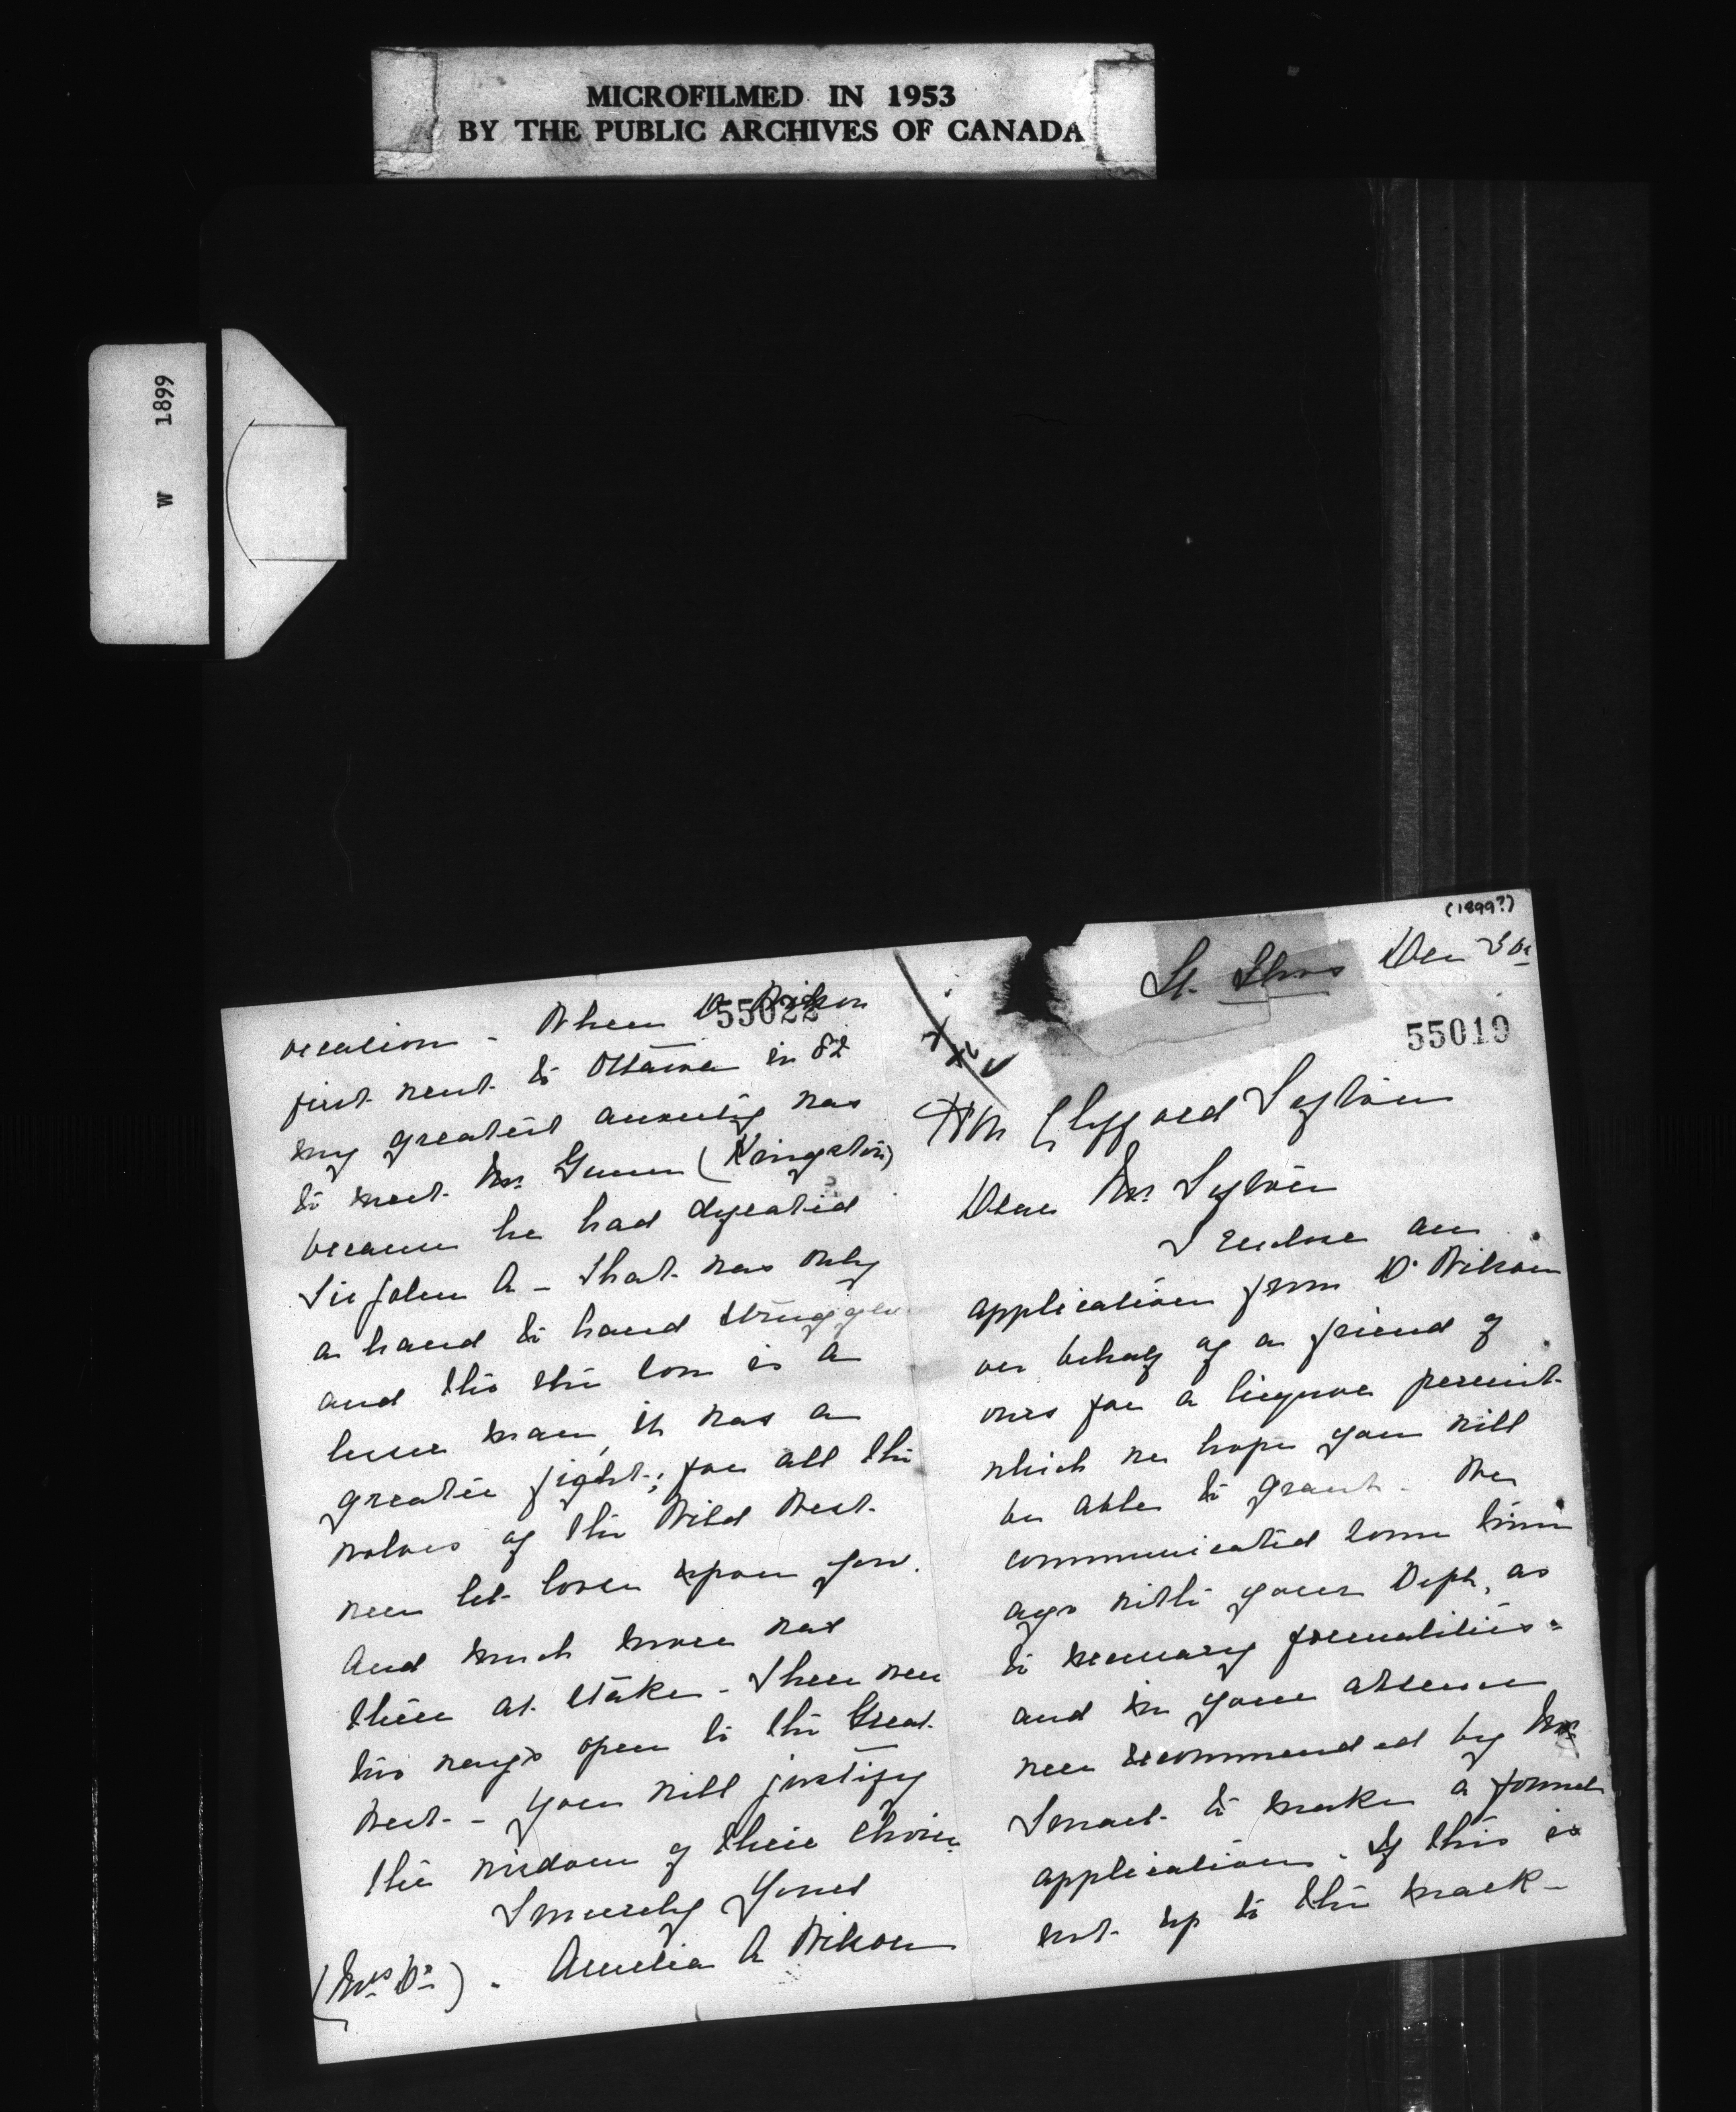 MICROFILMED IN 1953
BY THE PUBLIC ARCHIVES OF CANADA
W 1899
(1899?)
St. Dec
55019
Hon Clifford Sifton
Dear Mr Sifton
I enclose an
application from Dr Wilson
on behalf of a friend of
ours for a liquor permit
which we hope you will
be able to grant. We
communicated some time
ago with your Dept, as
to necessary formalities
and in your absence
were recommended by Mr
Smart to make a formal
application. If this is
not up to the mark
55022
occasion - When Dr Wilson
first went to Ottawa in 82
my greatest anxiety was
to meet Mr Gunn (Kingston)
because he had defeated
Sir John A - that was only
a hand to hand struggle
and tho the one is a
lesser man, it was a
greater fight; for all the
wolves of the Wild West
were let loose upon you.
And much more was
there at stake - There were
two ways open to the Great
West - you will justify
the wisdom of their choice
Sincerely Yours
(Mrs Dr) . Amelia A Wilson